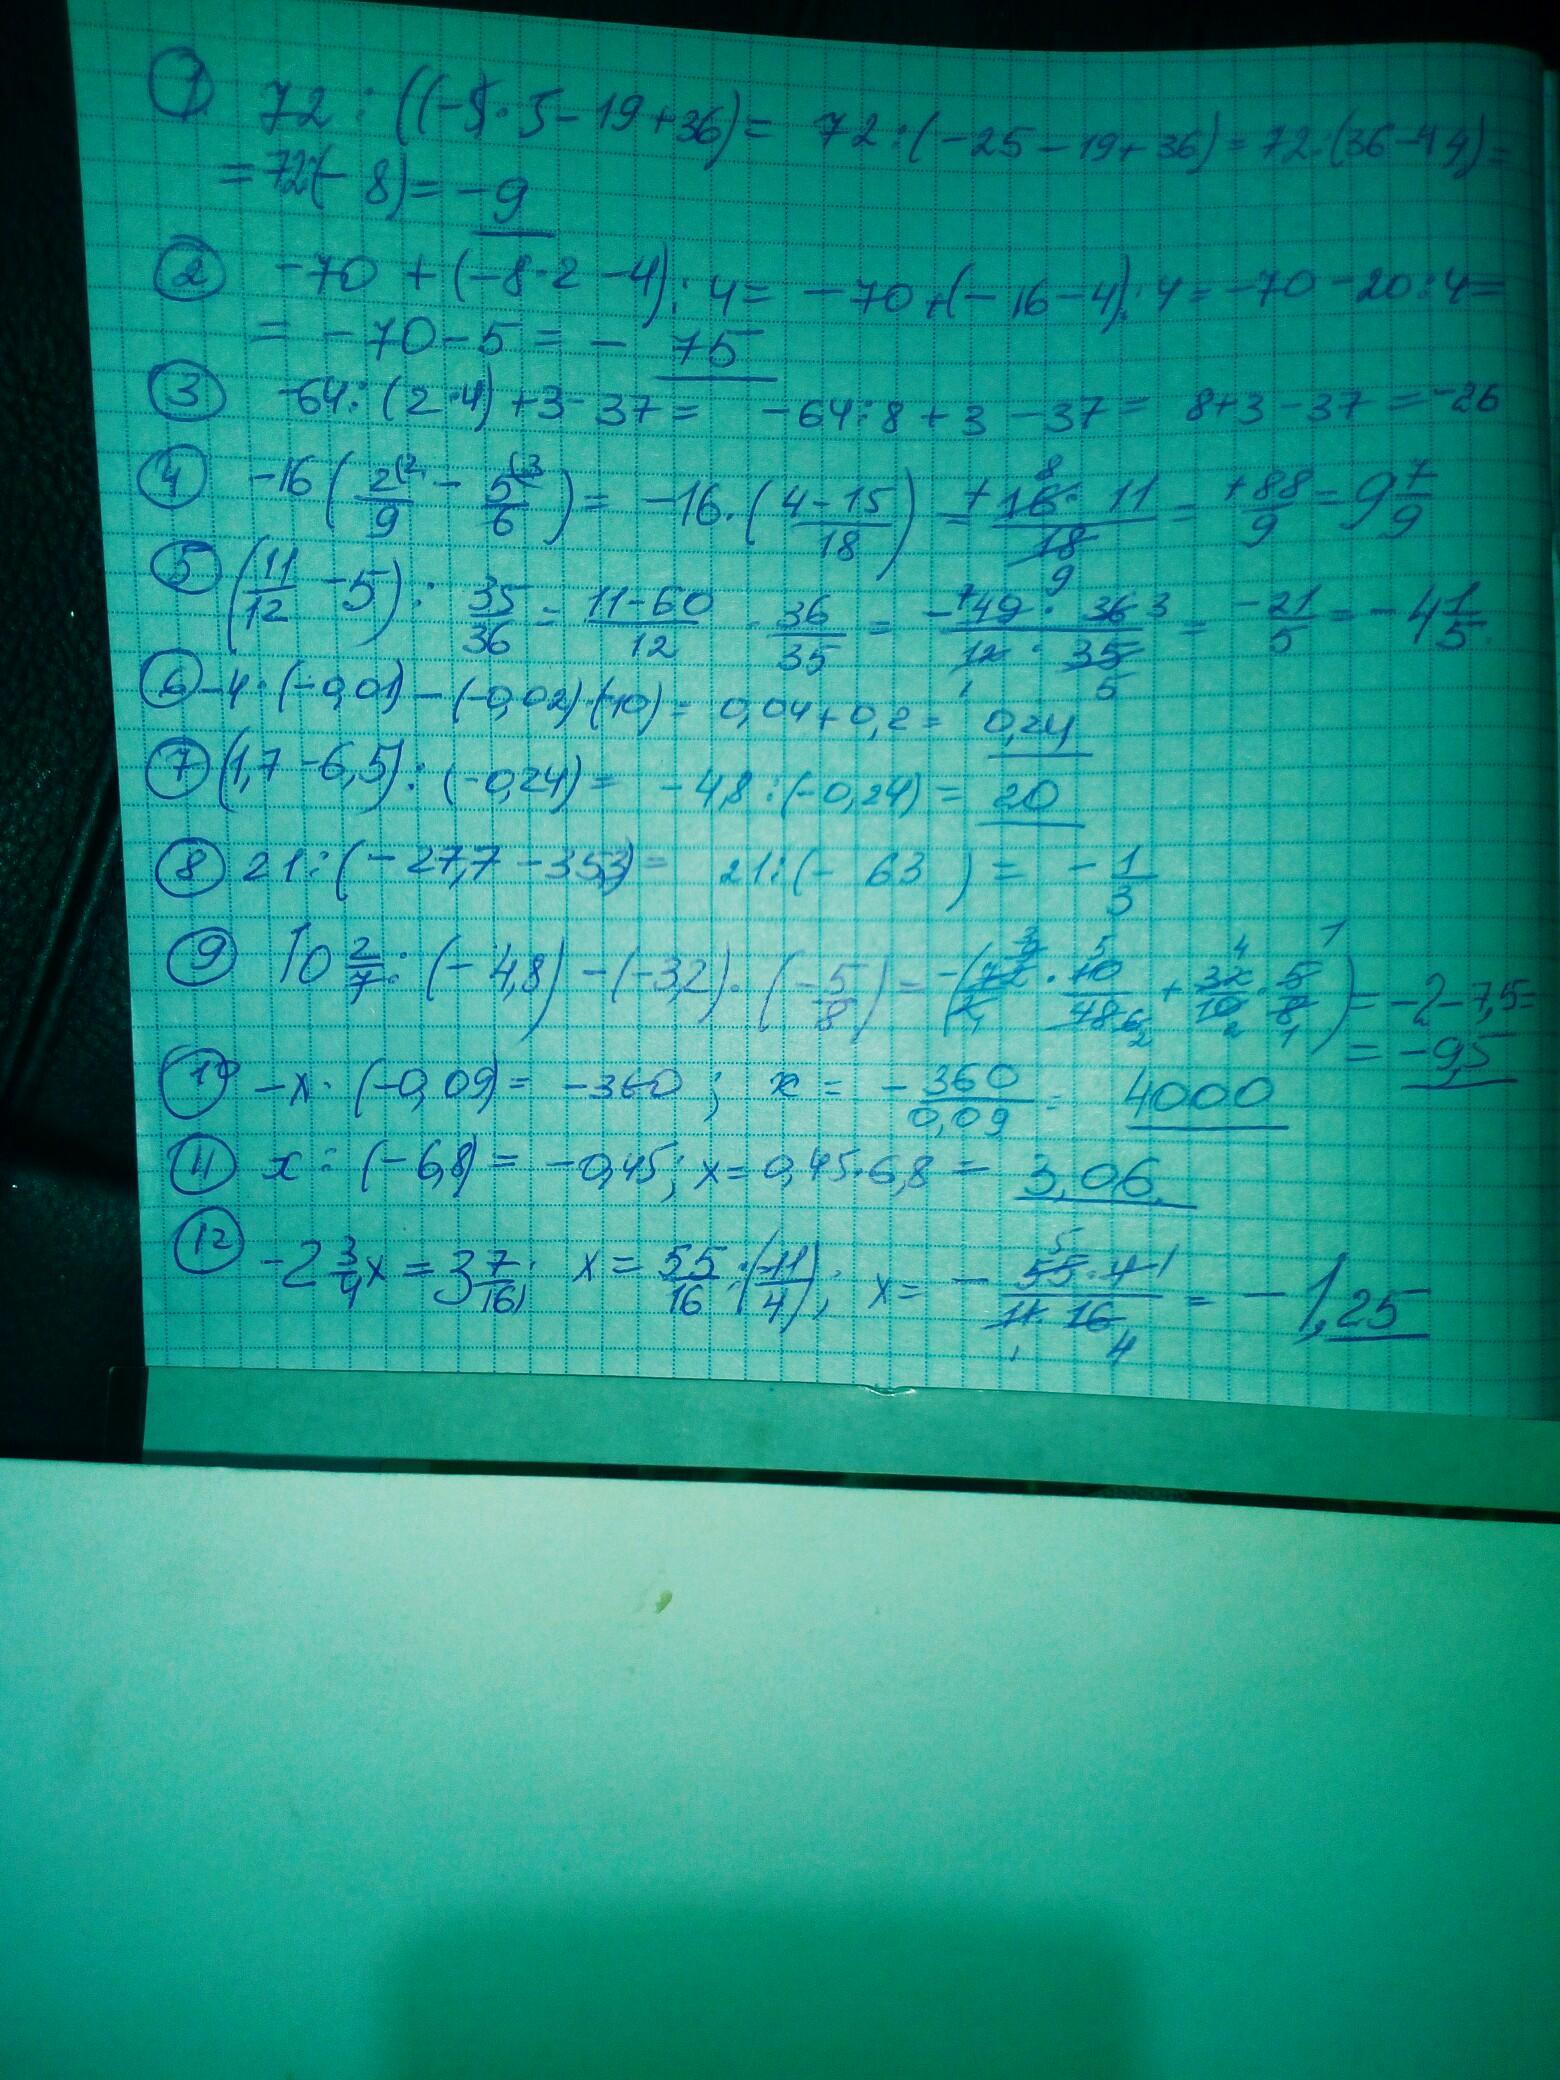 ① 72 : ((-5)·5-19+36) = 72:(-25-19+36) = 72:(36-44) =
= 72(-8) = -9
② -70 + (-8·2-4) : 4 = -70+(-16-4):4 = -70-20:4 =
= -70-5 = -75
③ -64:(2·4)+3-37 = -64:8+3-37 = 8+3-37 = -26
④ -16(2/9 - 5/6) = -16·(4-15/18) = +16·11/18 = +88/9 = 9 7/9
⑤ (11/12 - 5) : 35/36 = 11-60/12 · 36/35 = -49·36/12·35 = -21/5 = -4 1/5
⑥ -4·(-0,01)-(-0,02)·(10) = 0,04+0,2 = 0,24
⑦ (1,7-6,5):(-0,24) = -4,8:(-0,24) = 20
⑧ 21:(-27,7-35,3) = 21:(-63) = -1/3
⑨ 10 2/7 : (-4,8)-(-3,2)·(-5/8) = -(72/7·10/48+32/10·5/8) = -2-7,5=
= -9,5
⑩ -x·(-0,09) = -360 ; x = -360/0,09 = 4000
⑪ x : (-6,8) = -0,45; x = 0,45·6,8 = 3,06
⑫ -2 3/4x = 3 7/16; x = 55/16 : (-11/4); x = -55·4/11·16 = -1,25